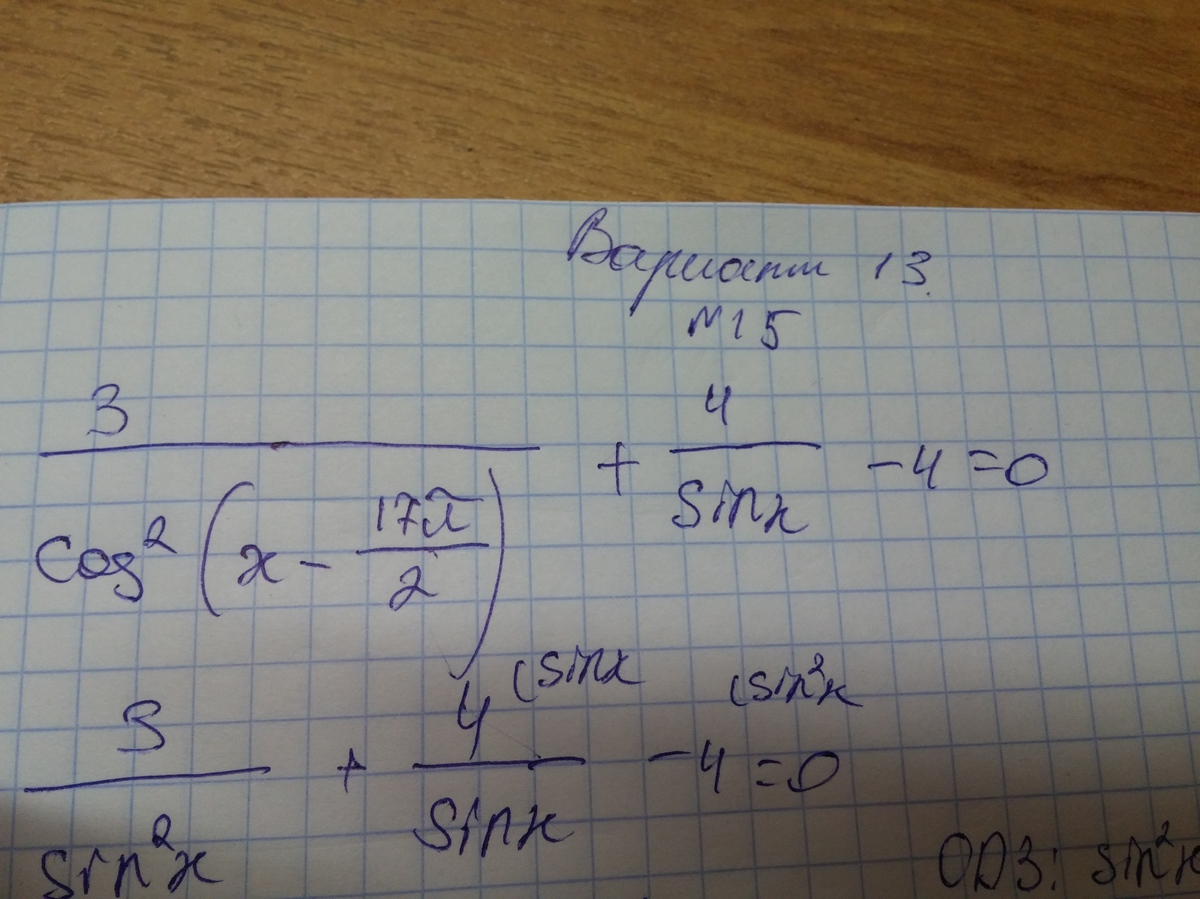 Вариант 13.
№15
3 / cos² (x - 17π / 2) + 4 / sinx - 4 = 0
3 / sin²x + 4 (sinx / sinx - 4 (sin²x = 0
ОДЗ: sin²x